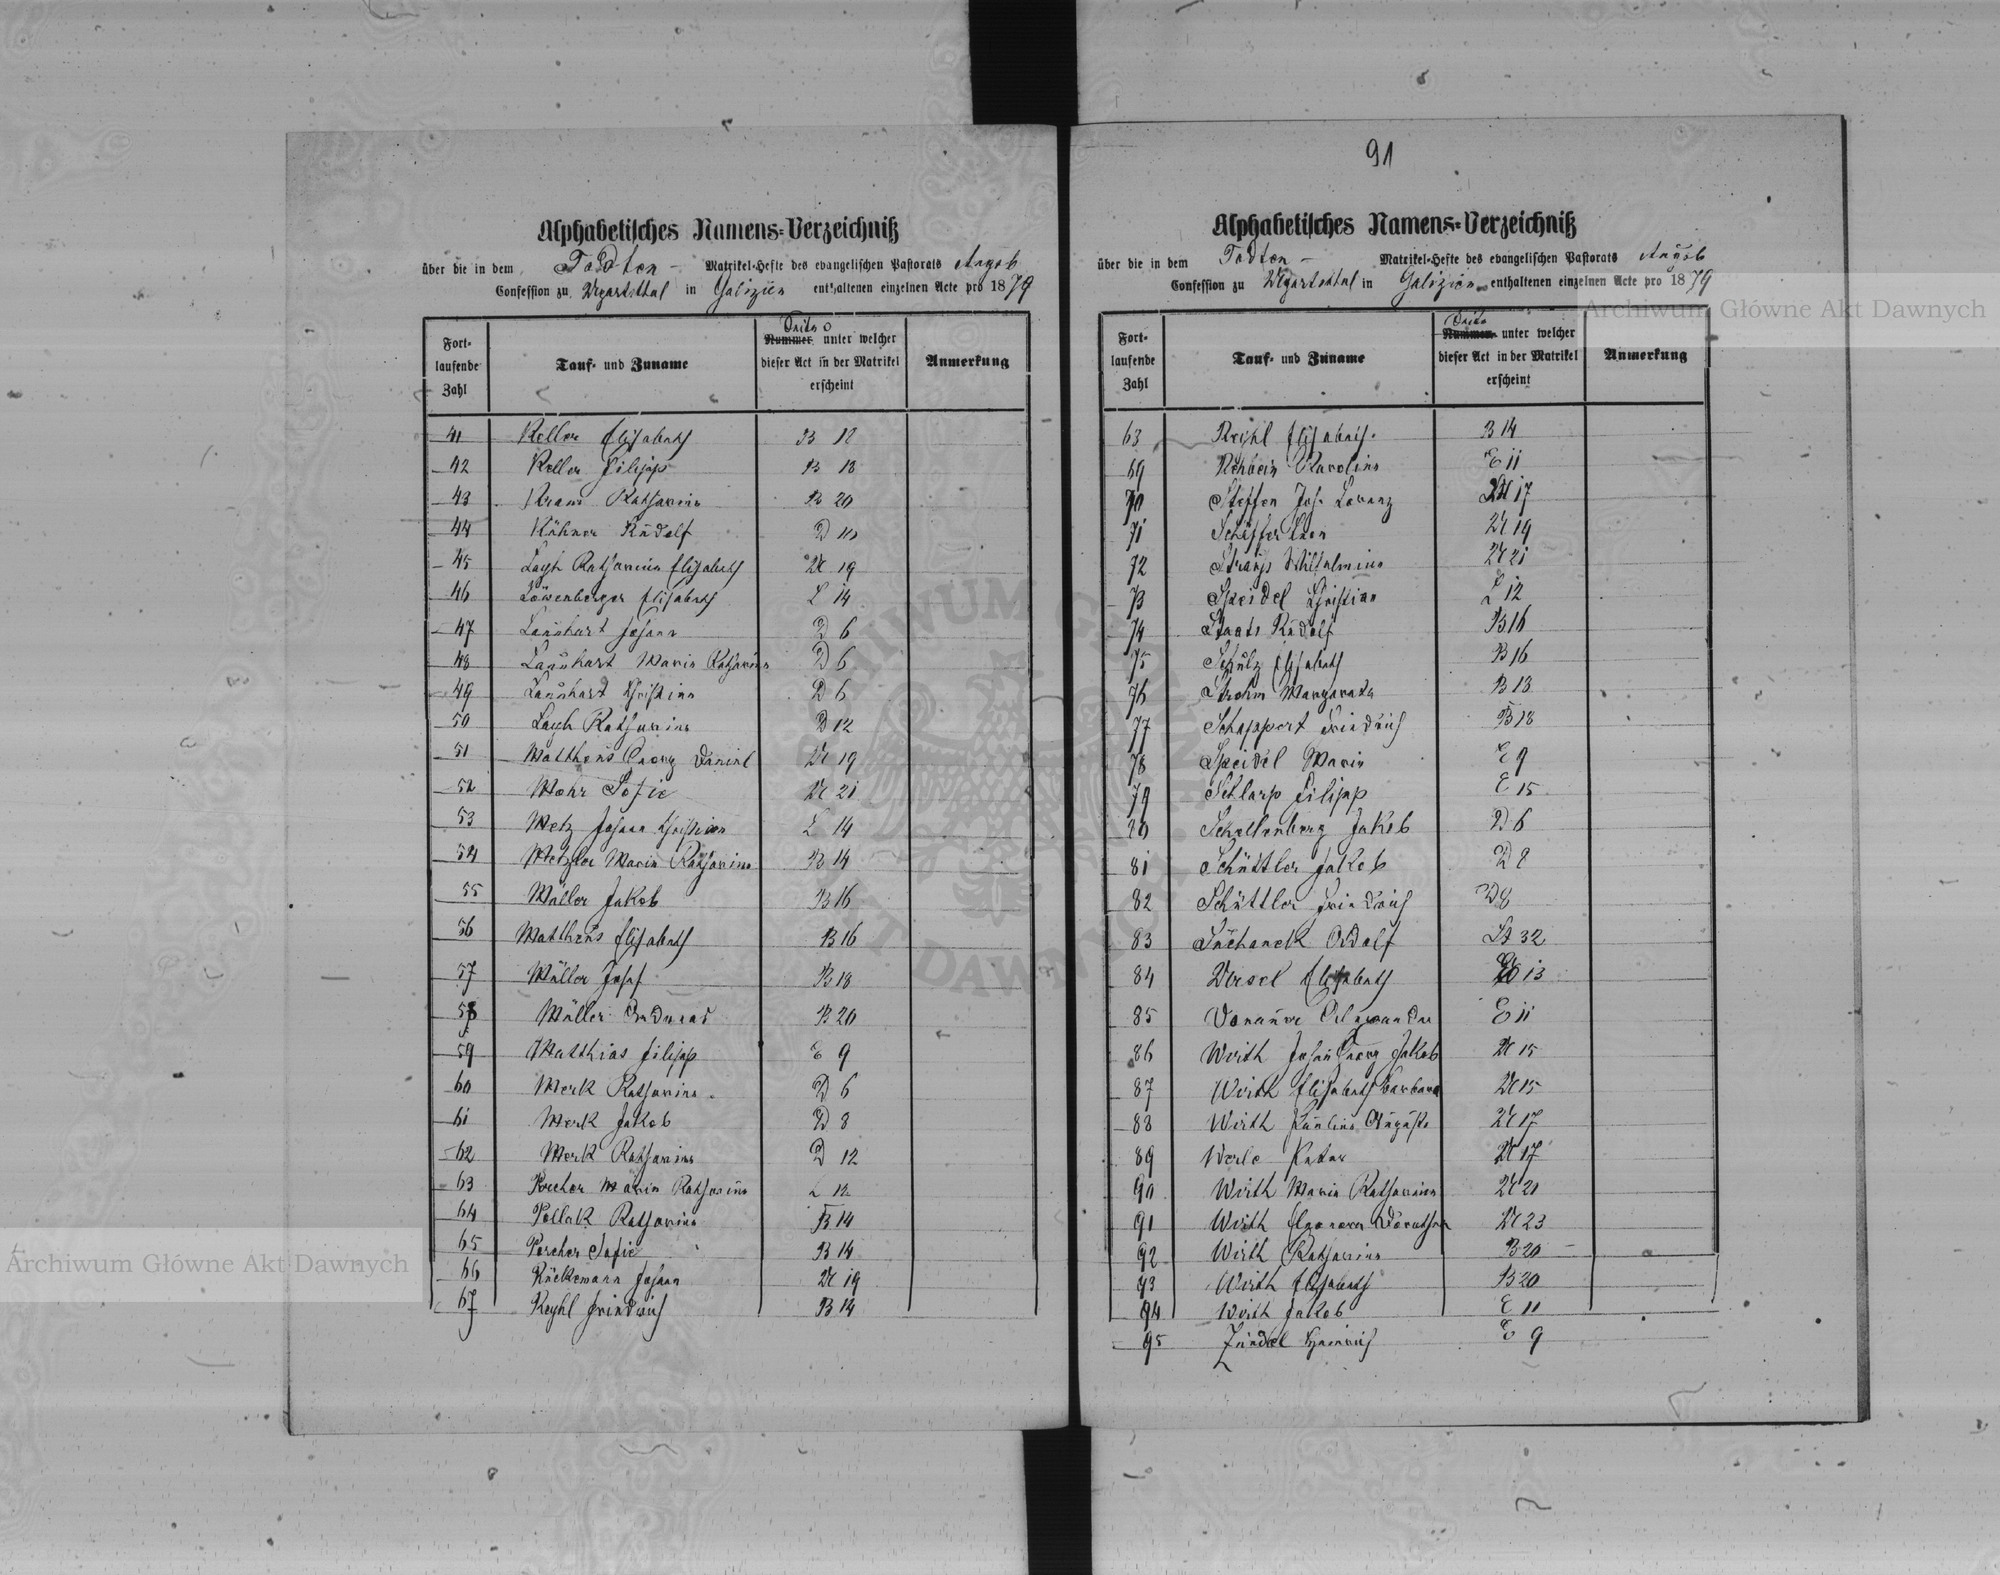 91
Alphabetisches Namens-Verzeichniß
über die in dem Todten - Matrikel-Hefte des evangelischen Pastorats Augsb
Confession zu Ugartsthal in Galizien enthaltenen einzelnen Acte pro 1879
Fort-
laufende
Zahl
Tauf- und Zuname
Seite
Nummer unter welcher
dieser Act in der Matrikel
erscheint
Anmerkung
41 Keller Elisabeth B 12
42 Keller Filipp B 18
43 Kram Katharina B 20
44 Kühner Rudolf D 10
45 Layh Katharina Elisabeth U 19
46 Löwenberger Elisabeth L 14
47 Lanhart Johann D 6
48 Lanhart Maria Katharina D 6
49 Lanhart Christina D 6
50 Layh Katharina D 12
51 Mattheus Georg Daniel U 19
52 Mohr Sofie U 21
53 Metz Johann Christian L 14
54 Metzler Maria Katharina B 14
55 Müller Jakob B 16
56 Mattheus Elisabeth B 16
57 Müller Josef B 18
58 Müller Andreas B 20
59 Matthias Filipp E 9
60 Merk Katharina D 6
61 Merk Jakob D 8
62 Merk Katharina D 12
63 Porcher Maria Katharina L 12
64 Pollak Katharina B 14
65 Porcher Sofie B 14
66 Rückemann Johann U 19
67 Reyhl Friedrich B 14
Alphabetisches Namens-Verzeichniß
über die in dem Todten - Matrikel-Hefte des evangelischen Pastorats Augsb
Confession zu Ugartsthal in Galizien enthaltenen einzelnen Acte pro 1879
Fort-
laufende
Zahl
Tauf- und Zuname
Seite
Nummer unter welcher
dieser Act in der Matrikel
erscheint
Anmerkung
63 Reyhl Elisabeth B 14
69 Rehbein Karolina E 11
70 Steffen Joh. Lorenz U 17
71 Schäffer U 19
72 Wilhelmina U 21
73 Speidel Christian L 12
74 Staats Rudolf B 16
75 Schulz Elisabeth B 16
76 Strohm Margareta B 18
77 Schappert Friedrich B 18
78 Speidel Maria E 9
79 Schlarp Filipp E 15
80 Schallenberg Jakob D 6
81 Schüttler Jakob D 8
82 Schüttler Friedrich D 8
83 Suchanek Adolf St 32
84 Versel Elisabeth 13
85 Alexander E 11
86 Wirth Johann Georg Jakob U 15
87 Wirth Elisabeth Barbara U 15
88 Wirth Paulina Augusta U 17
89 Werle Peter U 17
90 Wirth Maria Katharina U 21
91 Wirth Eleonora Dorothea U 23
92 Wirth Katharina B 20
93 Wirth Elisabeth B 20
94 Wirth Jakob E 11
95 Zündel Heinrich E 9
Archiwum Główne Akt Dawnych
Archiwum Główne Akt Dawnych